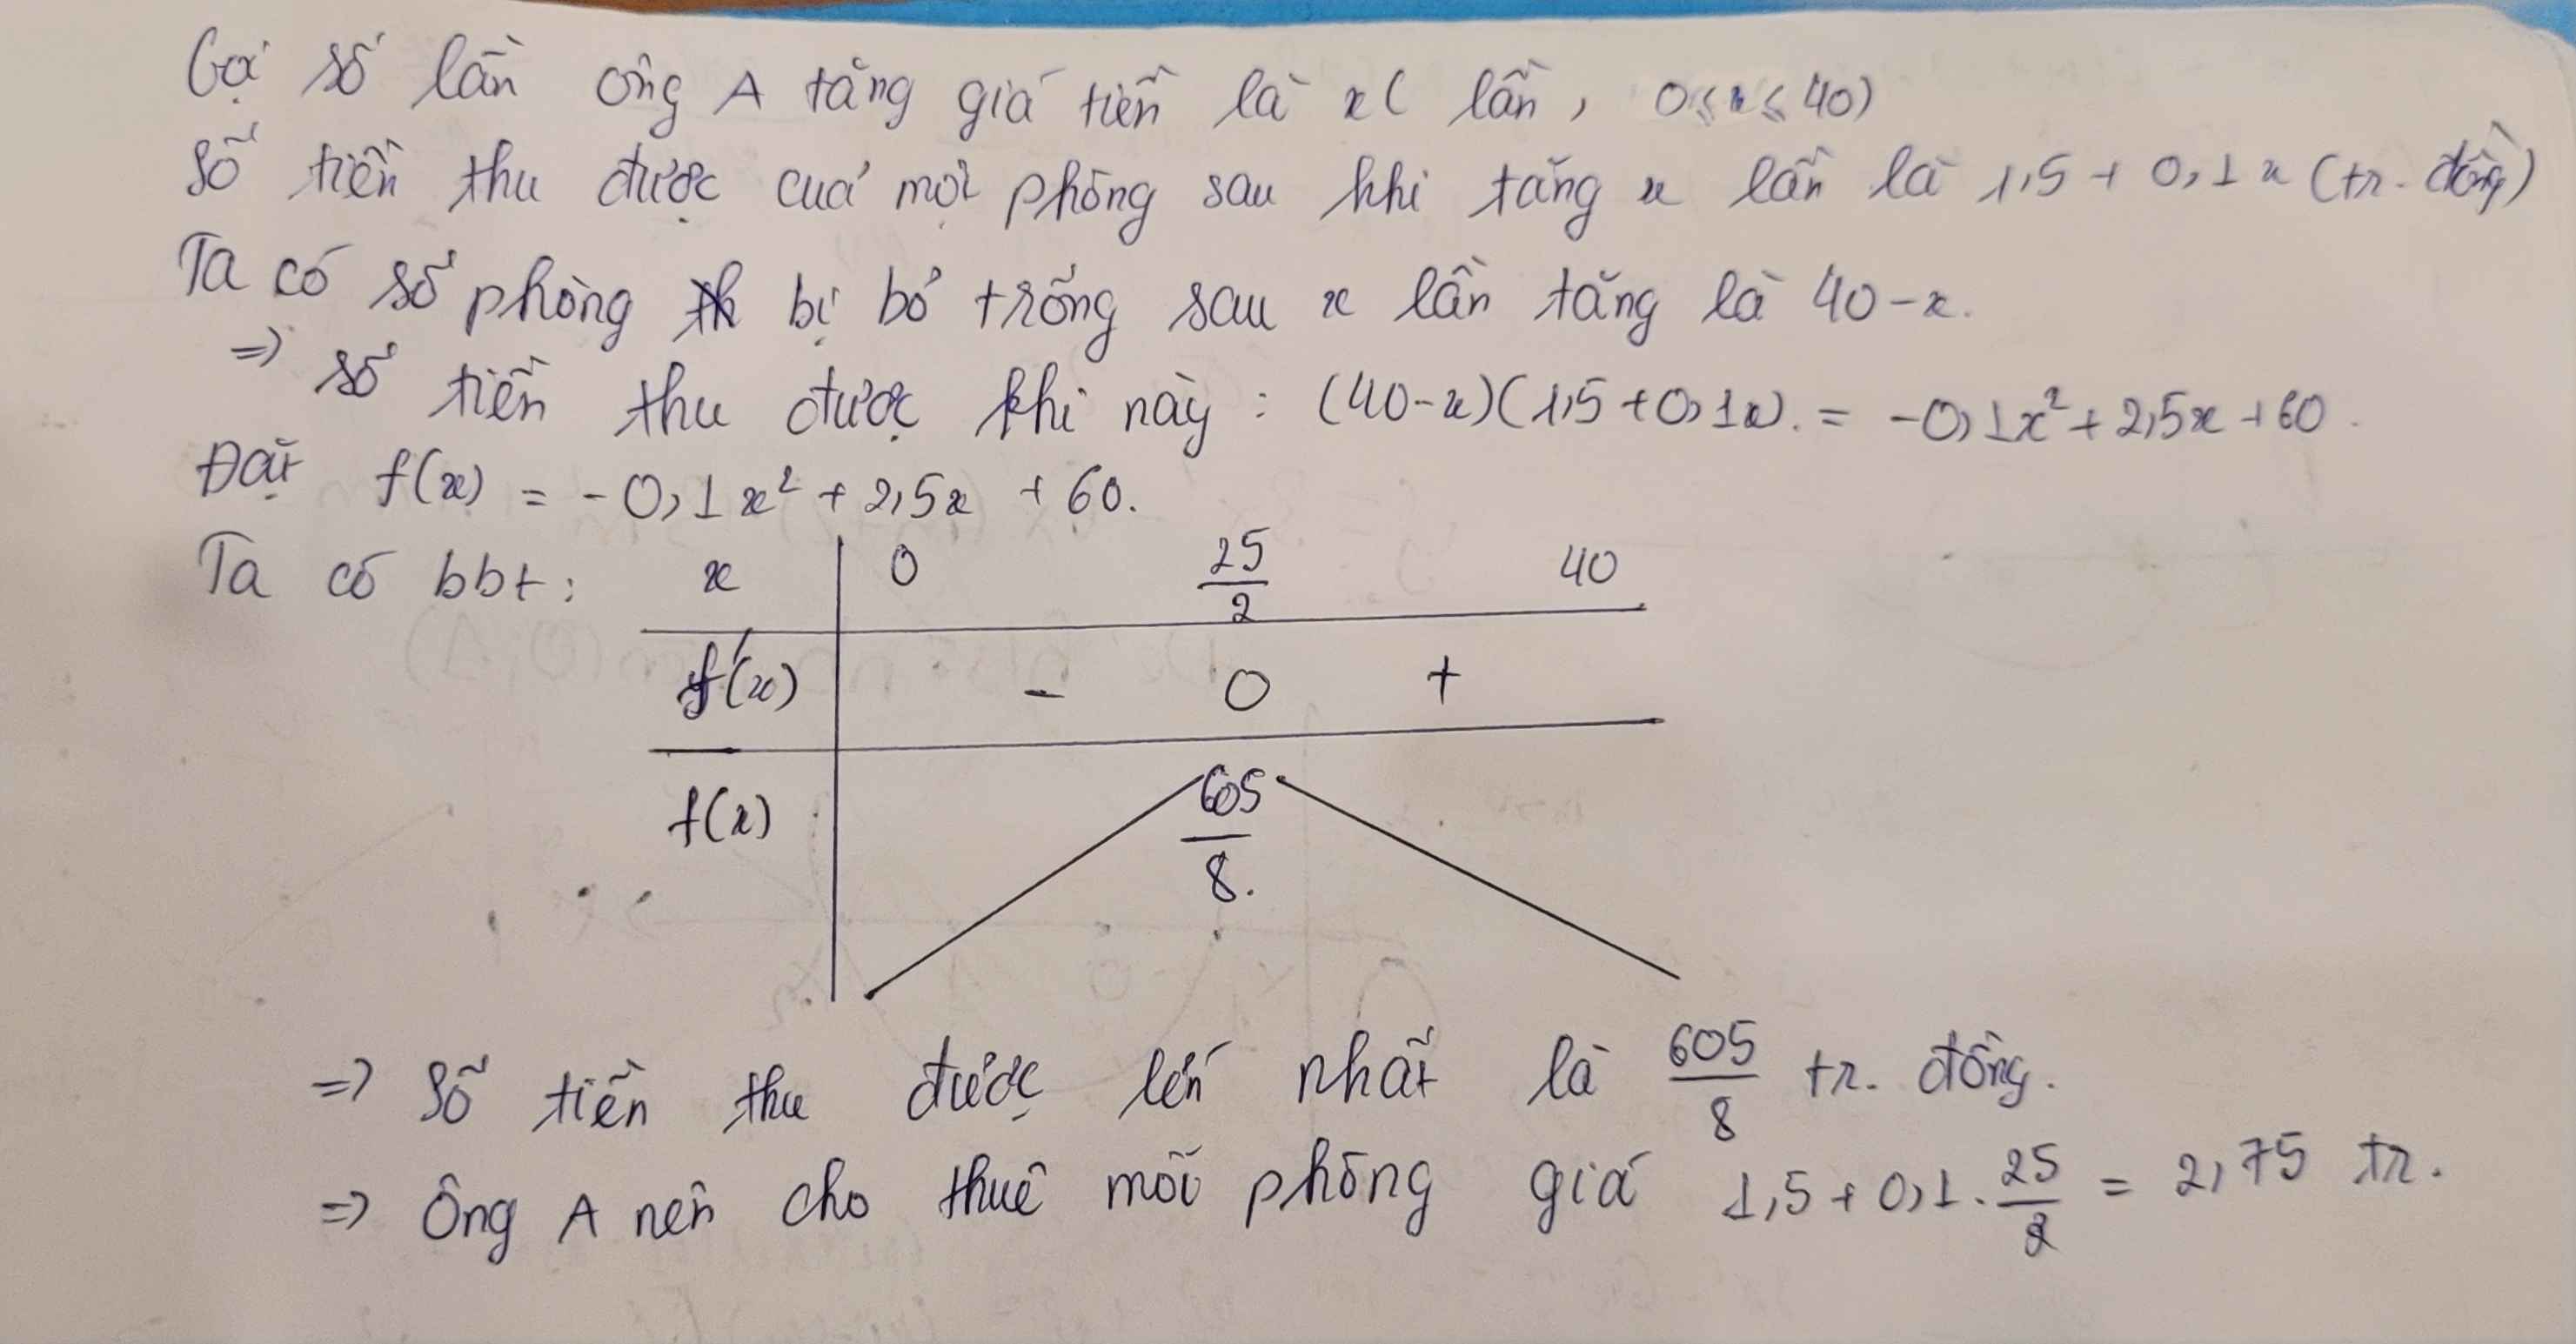 Gọi số lần ông A tăng giá tiền là x ( lần, 0 ≤ x ≤ 40)
Số tiền thu được của mọi phòng sau khi tăng x lần là 1,5 + 0,1x (tr. đồng)
Ta có số phòng bị bỏ trống sau x lần tăng là 40 - x.
=> số tiền thu được khi này : (40-x)(1,5 + 0,1x). = -0,1x² + 2,5x + 60.
Đặt f(x) = -0,1x² + 2,5x + 60.
Ta có bbt: x 0 25/2 40
f'(x) - 0 +
f(x) 605/8.
=> Số tiền thu được lớn nhất là 605/8 tr. đồng.
=> Ông A nên cho thuê mỗi phòng giá 1,5 + 0,1. 25/2 = 2,75 tr.